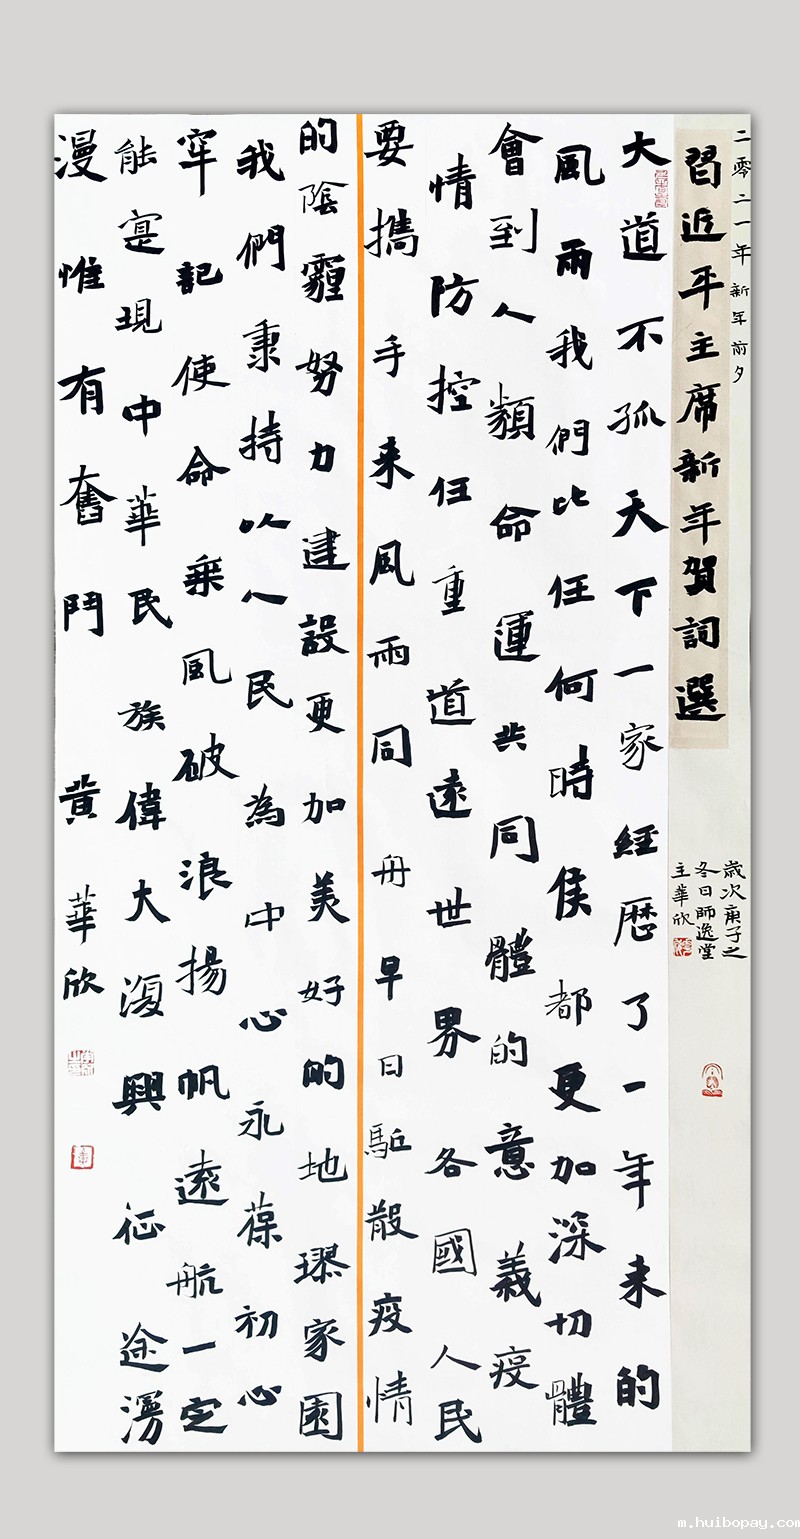 二零二一年新年前夕
習近平主席新年賀詞選
歲次庚子之
冬日師逸堂
主華欣
大道不孤天下一家經歷了一年来的
風雨我們比任何時侯都更加深切體
會到人類命運共同體的意義疫
情防控任重道遠世界各國人民
要攜手来風雨同舟早日駈散疫情
的陰霾努力建設更加美好的地璆家園
我們秉持以人民為中心永葆初心
牢記使命乗風破浪揚帆遠航一定
能寔現中華民族偉大復興征途漫
漫惟有奮鬥 黄華欣
m.huibopay.com